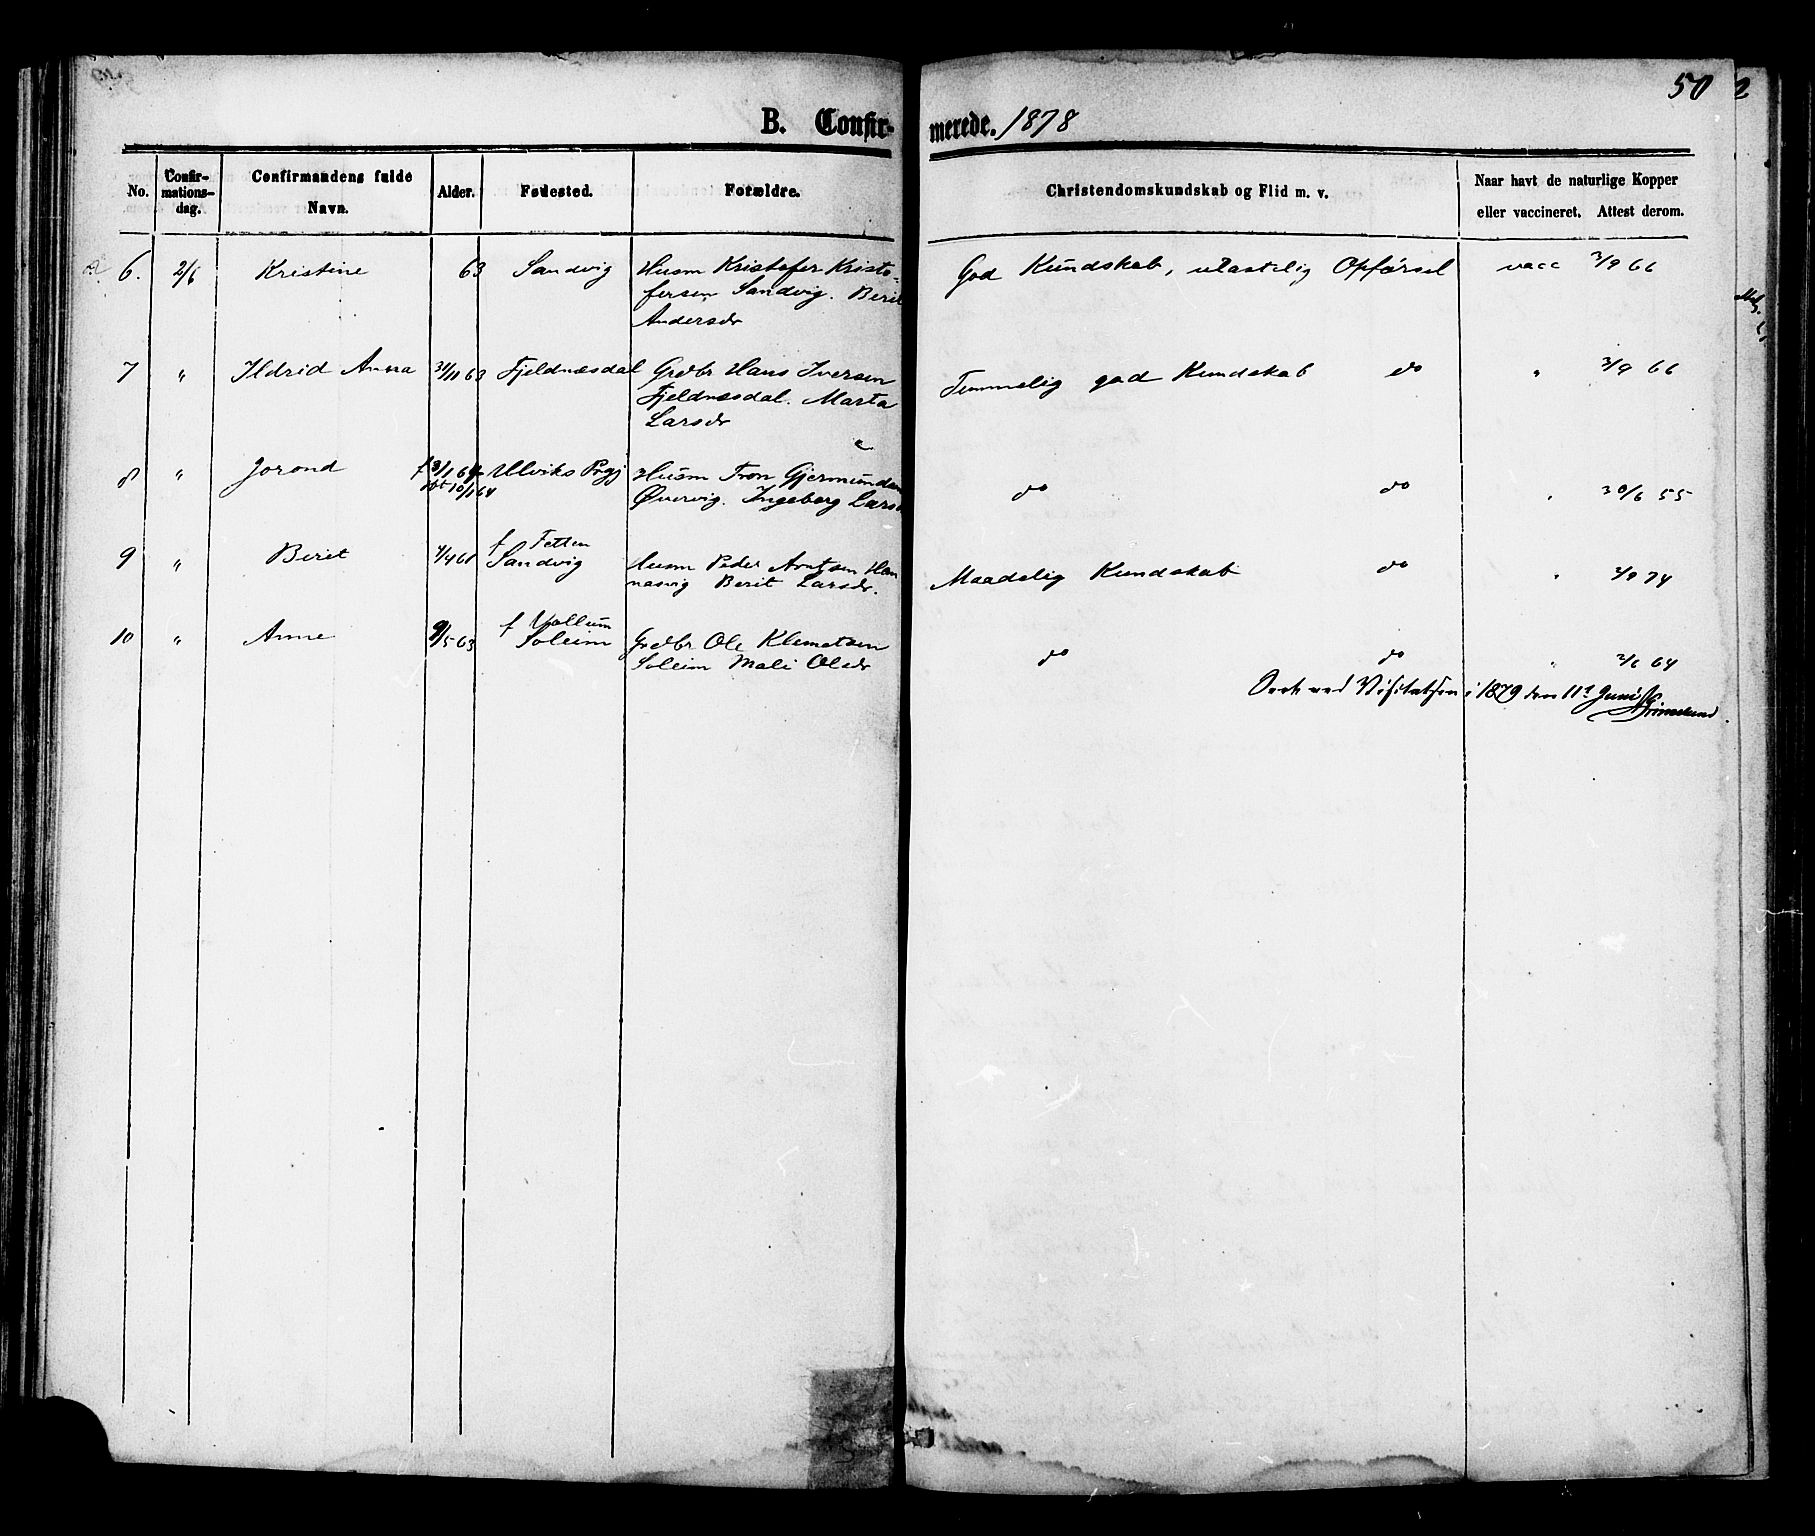 50
B. Confir- merede. 1878
No. Confir-mations-dag. Confirmandens fulde Navn. Alder. Fødested. Forældre. Christendomskundskab og Flid m. v. Naar havt de naturlige Kopper eller vaccineret. Attest derom.
6. 2/6 Kristine 63 Sandvig Husm Kristofer Kristo- God Kundskab, ulastelig Opførsel vacc 3/9 66
fersen Sandvig. Berit
Andersdr
7 " Ildrid Anna 31/11 63 Fjeldnæsdal Grdbr Hans Iversen Temmelig god Kundskab do " 3/9 66
Fjeldnæsdal. Marta
Larsdr
8 " Jorond f 3/1 64 Ulviks Prgj Husm Tron Gjermundsen do do " 30/6 55
dbt 10/1 64 Øvervig. Ingeborg Larsd
9 " Beret 4/4 61 f Fetten
Sandvig Husm Peder Arntsen Han Maadelig Kundskab do " 3/9 74
nasvig Berit Larsdr.
10 " Anne 9/5 63 f Vollum
Soleim Grdbr Ole Klemetsen do do " 2/6 64
Soleim Mali Olsdr
ved Visitatsen i 1879 den 11te Juni
Grimelund.